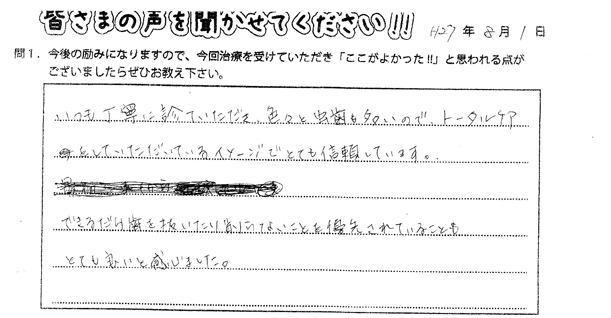 皆さまの声を聞かせてください!!
H27年8月1日
問1．今後の励みになりますので、今回治療を受けていただき「ここがよかった!!」と思われる点が
ございましたらぜひお教え下さい。
いつも丁寧に診ていただき、色々と虫歯も多いので、トータルケア
をしていただいているイメージでとても信頼しています。
できるだけ歯を抜いたり削らないことを優先されていることも
とても良いと感じました。